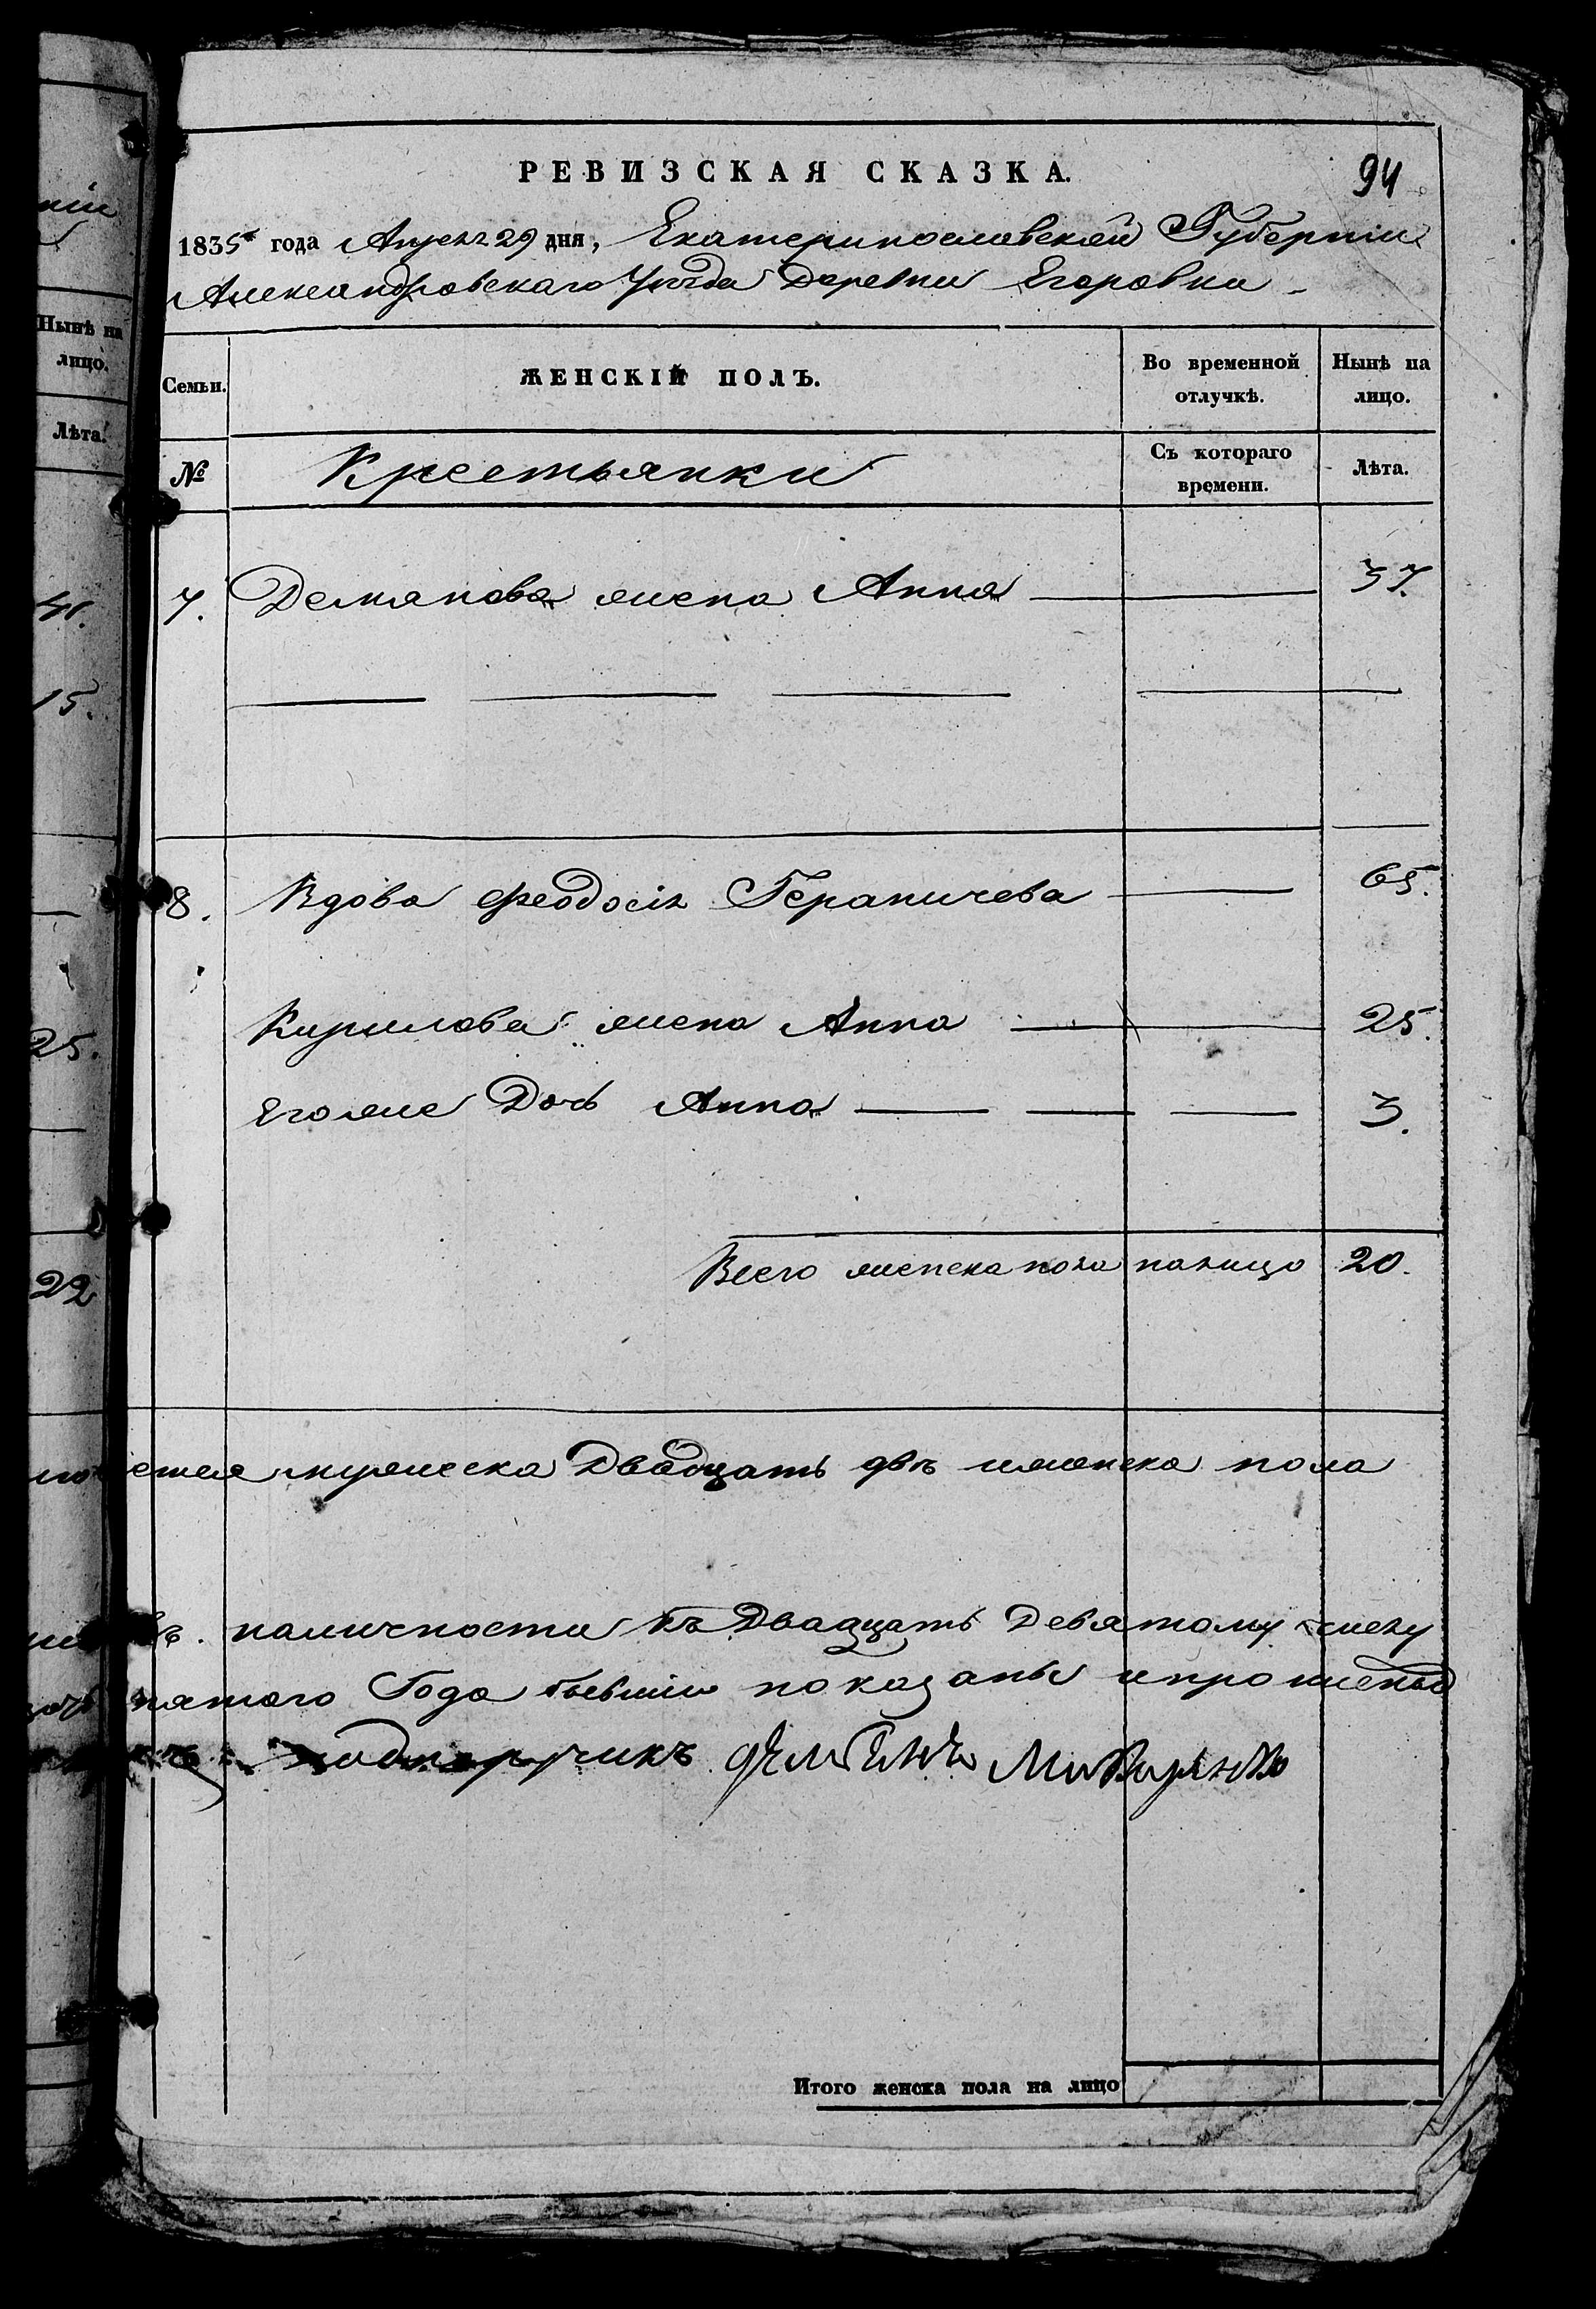 РЕВИЗСКАЯ СКАЗКА. 94
1835 года Апреля 29 дня, Екатеринославской Губернии
Александровскаго Уѣзда Деревни Егоровки
Нынѣ на лицо.
Лѣта.
41.
15.
25.
22
Семьи. ЖЕНСКІЙ ПОЛЪ. Во временной отлучкѣ. Нынѣ на лицо.
№ Крестьянки Съ котораго времени. Лѣта.
7. Демянова жена Анна 37.
8. Вдова Феодосия 65.
Кирилова жена Анна 25.
Егоже Дочь Анна 3.
Всего женска пола налицо 20.
мужеска Двадцать два иженска пола
наличности къ Двадцать Девятому числу
пятого Года показаны
подпоручикъ
Итого женска пола на лицо